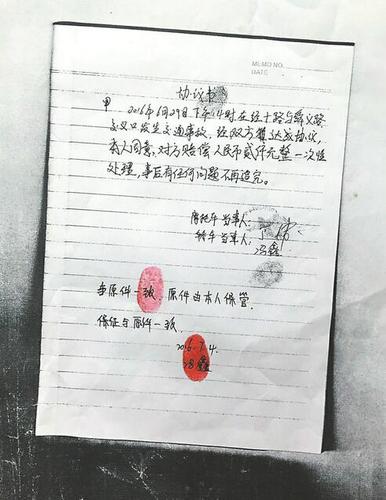 MEMO NO.
DATE
协议书
2016年6月29日下午14时在经十路与舜义路
交叉口发生交通事故,经双方达成协议,
本人同意,对方赔偿人民币贰仟元整一次性
处理,事后有任何问题不再追究。
摩托车当事人:
轿车当事人:
冯鑫
与原件一致,原件由本人保管,
保证与原件一致。
2016.7.4.
冯鑫